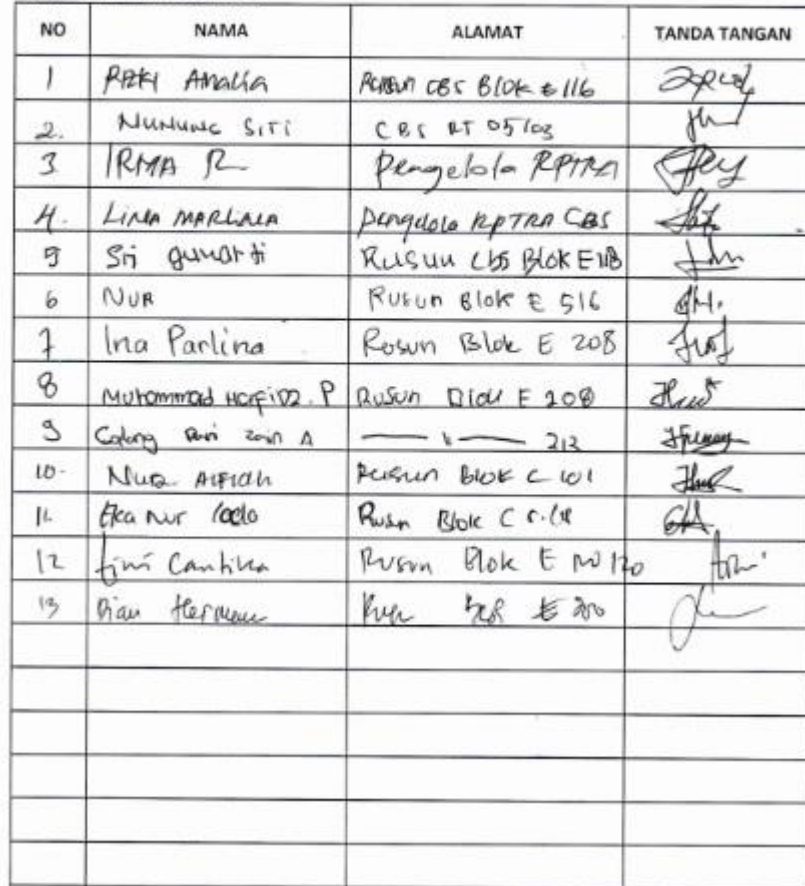 NO NAMA ALAMAT TANDA TANGAN
1 RIZKI AMALIA RUSUN CBS Blok E 116
2. NUNUNG SITI CBS RT 05/03
3 IRMA R Pengelola RPTRA
4. LINDA MARLALA pengelola RPTRA CBS
5 Sri gunarti RUSUN CBS BLOK E 118
6 NUR RUSUN Blok E 516
7 Ina Parlina Rosun Blok E 208
8 Muhammad Hafidz. P RUSUN Blok E 208
9 Zain A 212
10. NUR ALFIAH RUSUN BLOK C 101
11. Eka Nur Rusun Blok C
12 Cantika Rusun Blok E NO 120
13 Dian Hermawan E 200